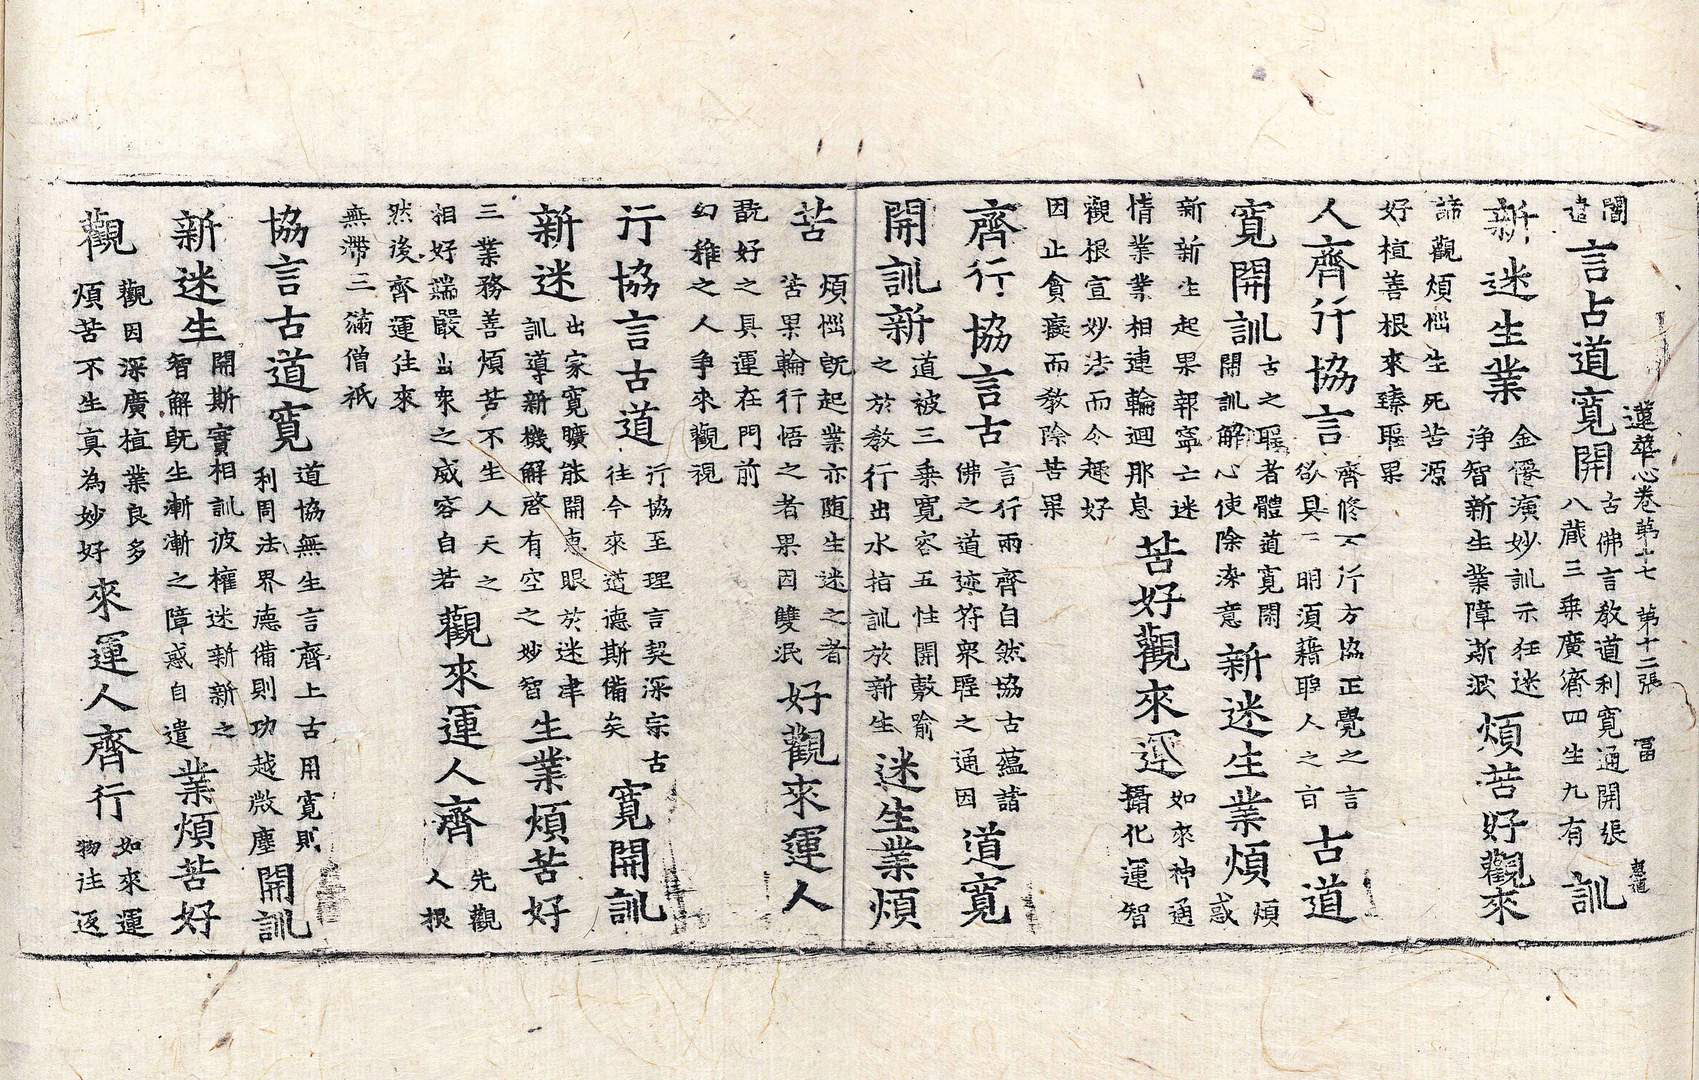 蓮華心卷第十七 第十二張 冨
闇
遣
言古道寬開
古佛言教道利寬通開張
八藏三乘廣濟四生九有
訓
新迷生業
金僊演妙訓示狂迷
淨智新生業障斯泯
煩苦好觀來
諦觀煩惱生死苦源
好植善根來臻聖果
人齊行協言
齊修万行方協正覺之言
欲具一明須藉聖人之旨
古道
寬開訓
古之聖者體道寬閑
開訓解心使除染意
新迷生業煩
煩
惑
新新生起果報寧亡迷
情業業相連輪迴那息
苦好觀來運
如來神通
攝化運智
觀根宣妙法而令趣好
因止貪癡而教除苦果
齊行協言古
言行兩齊自然協古蘊諸
佛之道迹符衆聖之通因
道寬
開訓新
道被三乘寬容五性開敷喻
之於教行出水指訓於新生
迷生業煩
苦
煩惱旣起業亦随生迷之者
苦果輪行悟之者果因雙泯
好觀來運人
翫好之具運在門前
幻稚之人爭來觀視
行協言古道
行協至理言契深宗古
往今來道德斯備矣
寬開訓
新迷
出家寬曠能開惠眼於迷津
訓導新機解啓有空之妙智
生業煩苦好
三業務善煩苦不生人天之
相好端嚴出衆之威容自若
觀來運人齊
先觀
人根
然後齊運往來
無滯三滿僧祇
協言古道寬
道協無生言齊上古用寬則
利周法界德備則功越微塵
開訓
新迷生
開斯實相訓彼權迷新新之
智解旣生漸漸之障惑自遣
業煩苦好
觀
觀因深廣植業良多
煩苦不生真為妙好
來運人齊行
如來運
物往返